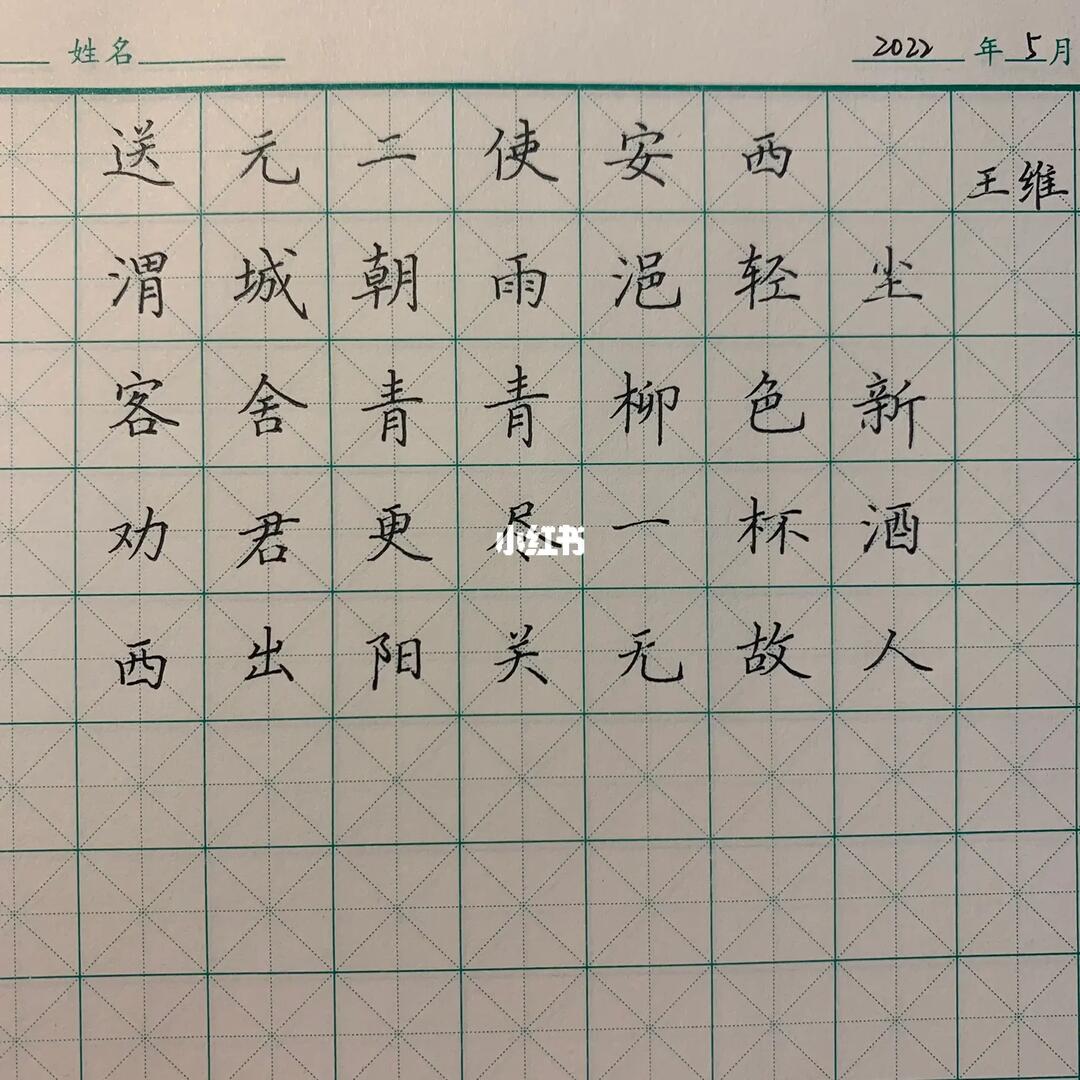 姓名 2022 年 5 月
送元二使安西 王维
渭城朝雨浥轻尘
客舍青青柳色新
劝君更尽一杯酒
小红书
西出阳关无故人